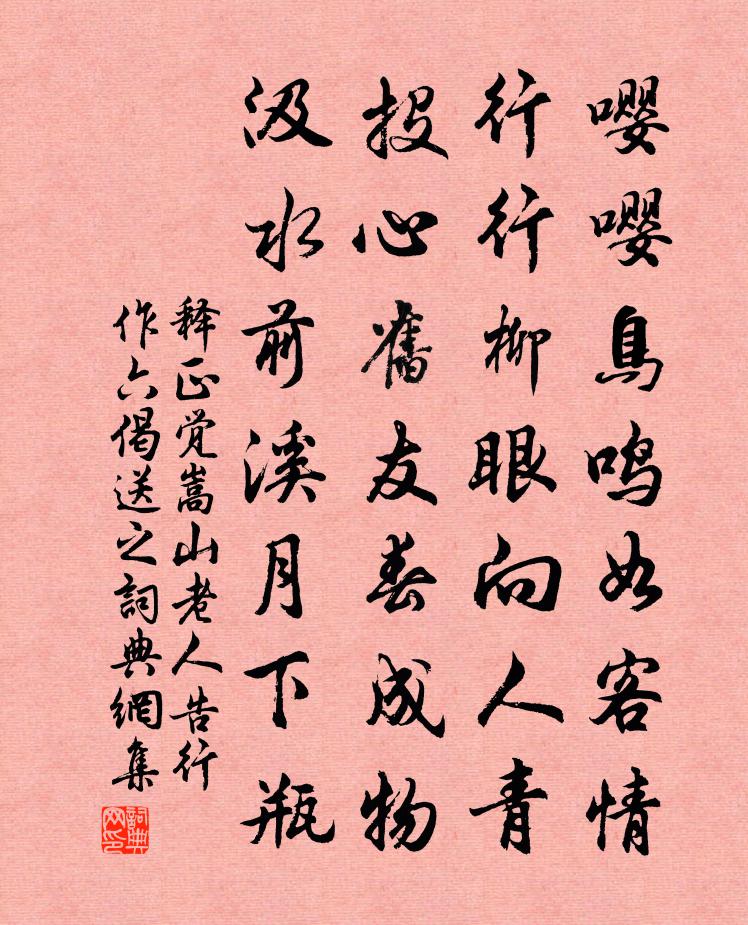 嘤嘤鳥鳴如客情
行行柳眼向人青
投心舊友春成物
汲水前溪月下瓶
釋正觉嵩山老人告行
作六偈送之詞典網集
詞典网印